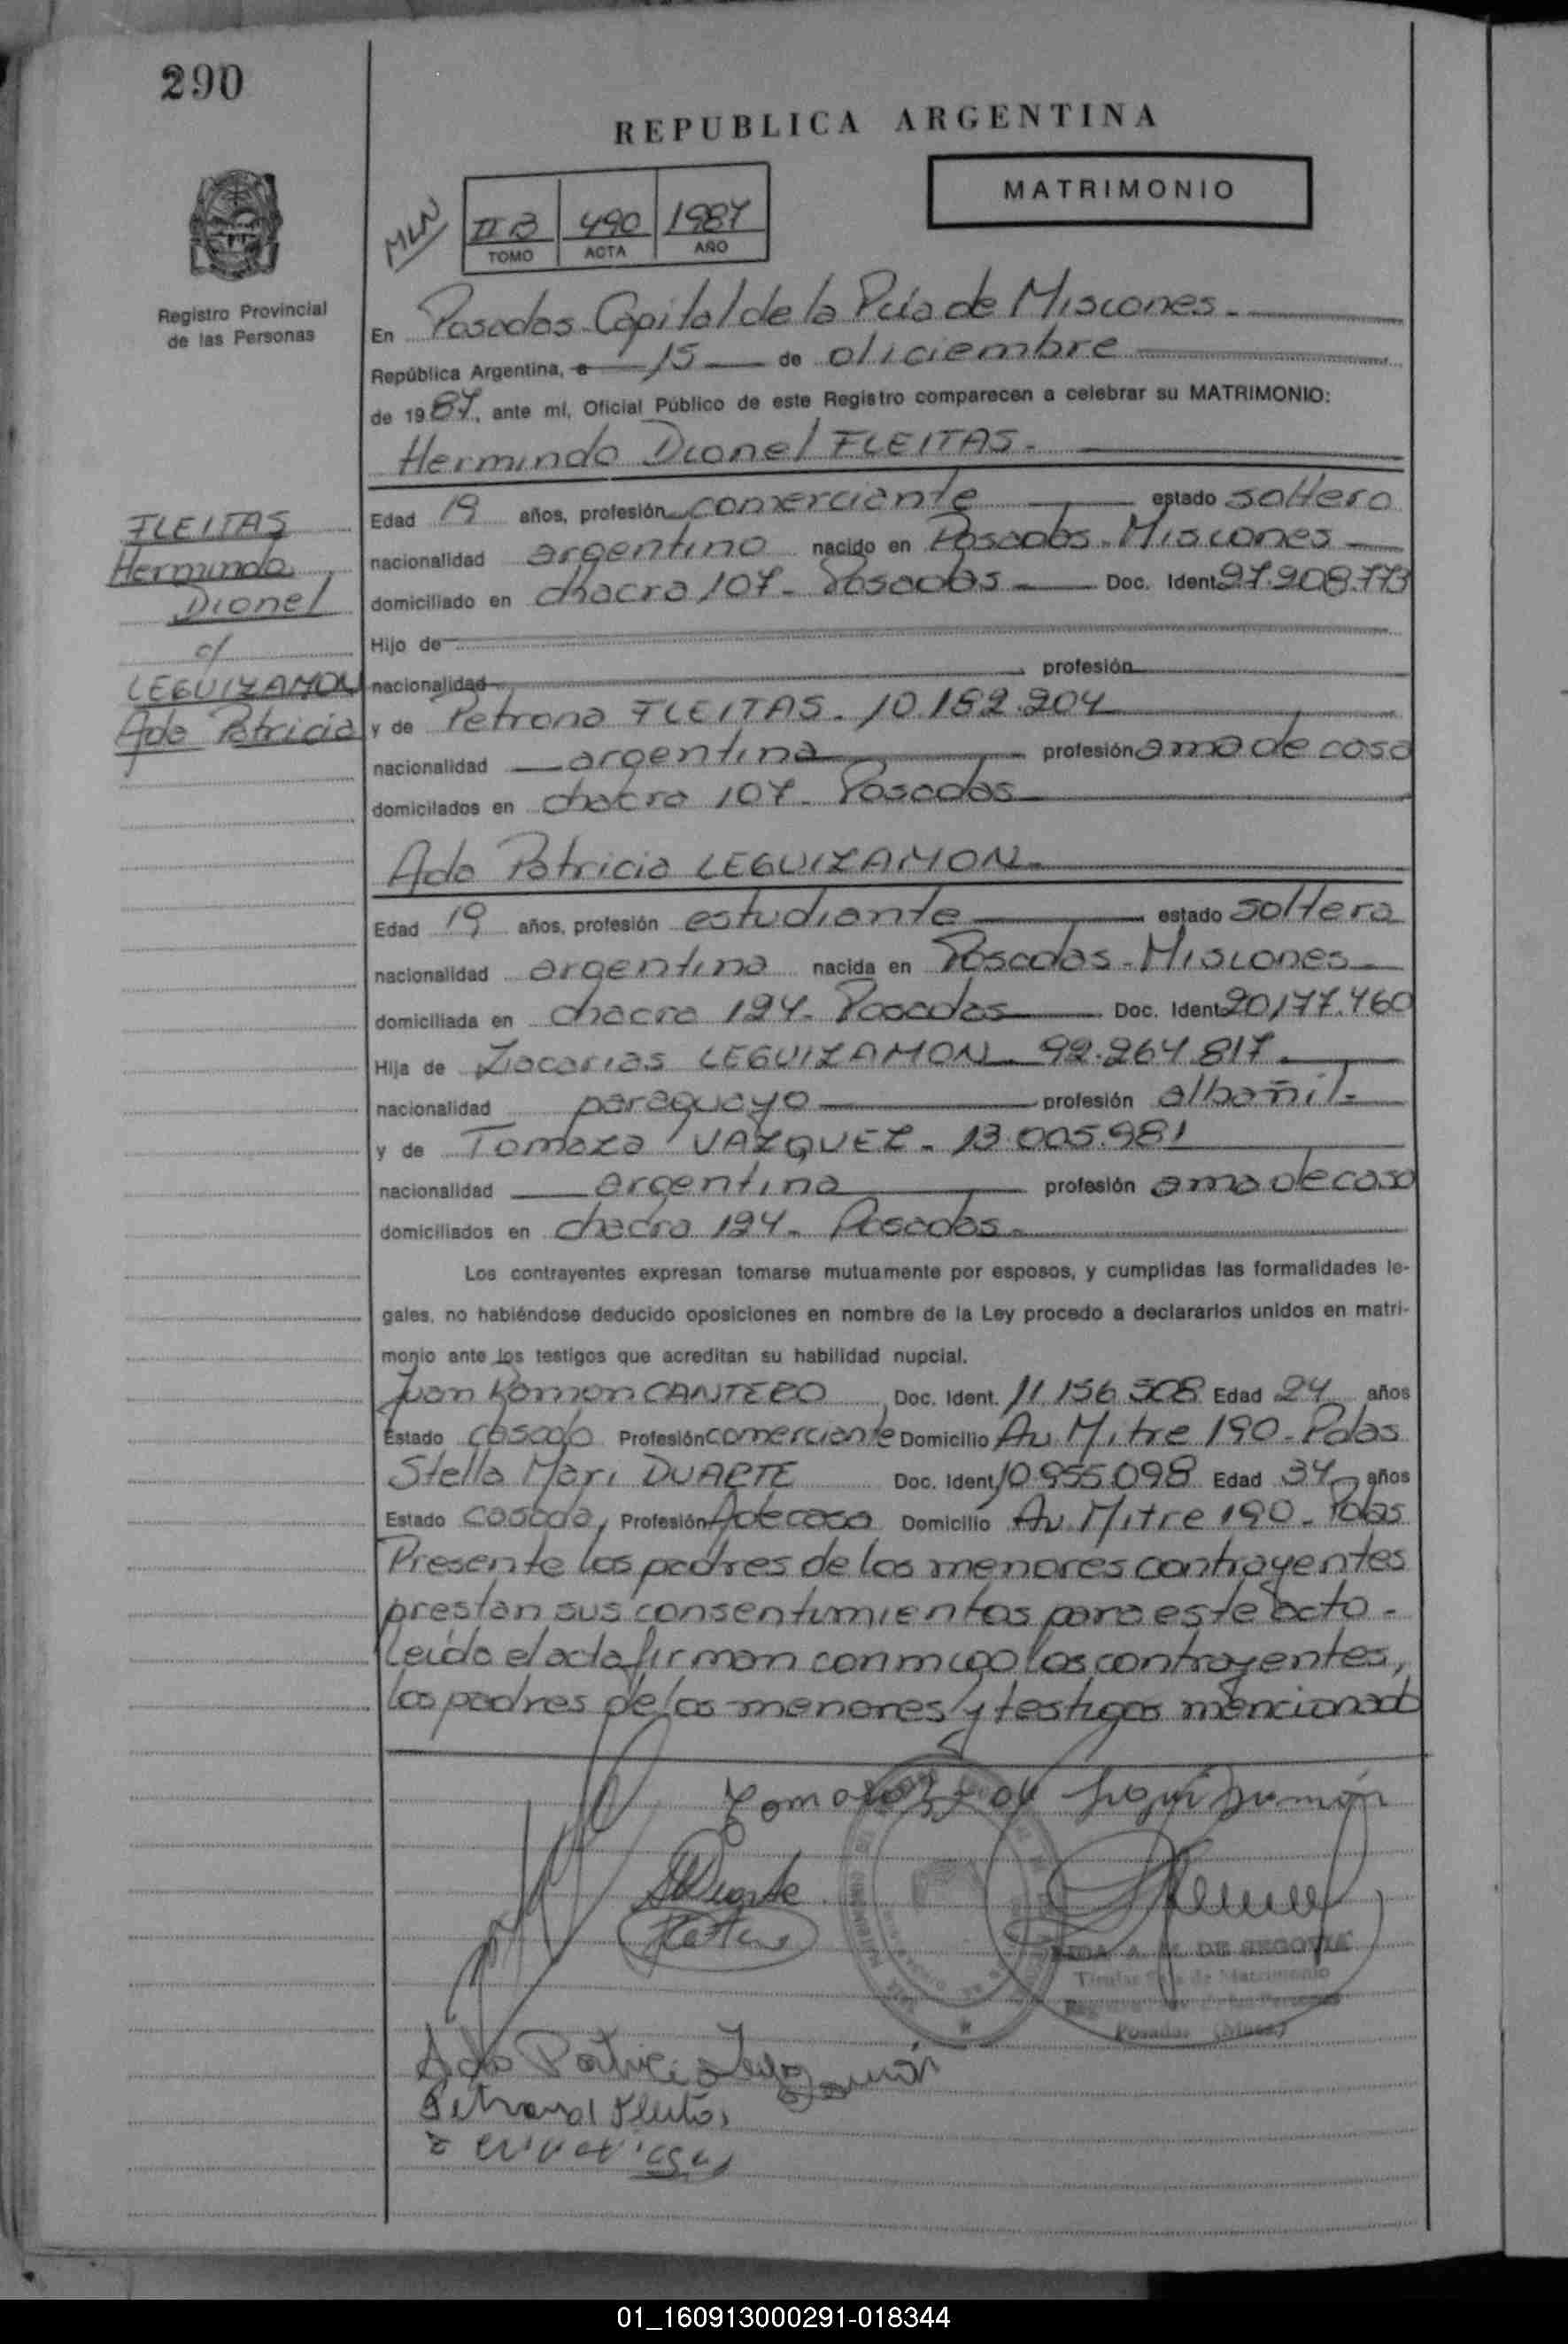 290
REPUBLICA ARGENTINA
MATRIMONIO
MLN
II B 490 1987
TOMO ACTA AÑO
Registro Provincial
de las Personas
En Posadas Capital de la Pcia de Misiones.
República Argentina, a 15 de diciembre
de 1987, ante mí, Oficial Público de este Registro comparecen a celebrar su MATRIMONIO:
Hermindo Dionel FLEITAS.
FLEITAS
Hermindo
Dionel
c/
LEGUIZAMON
Ada Patricia
Edad 19 años, profesión comerciante estado soltero
nacionalidad argentino nacido en Posadas - Misiones
domiciliado en chacra 107 - Posadas Doc. Ident. 27.908.773
Hijo de
nacionalidad profesión
y de Petrona FLEITAS. 10.182.204
nacionalidad argentina profesión ama de casa
domicilados en chacra 107 - Posadas
Ada Patricia LEGUIZAMON
Edad 19 años, profesión estudiante estado soltera
nacionalidad argentina nacida en Posadas - Misiones
domiciliada en chacra 124 - Posadas Doc. Ident. 20.177.460
Hija de Zacarias LEGUIZAMON 92.264.817
nacionalidad paraguayo profesión albañil.
y de Tomaza VAZQUEZ - 13.005.981
nacionalidad argentina profesión ama de casa
domiciliados en chacra 124 - Posadas
Los contrayentes expresan tomarse mutuamente por esposos, y cumplidas las formalidades le-
gales, no habiéndose deducido oposiciones en nombre de la Ley procedo a declararlos unidos en matri-
monio ante los testigos que acreditan su habilidad nupcial.
Juan Ramon CANTERO Doc. Ident. 11.156.508 Edad 24 años
Estado casado Profesión comerciante Domicilio Av Mitre 190 - Pdas
Stella Mari DUARTE Doc. Ident. 10.955.098 Edad 34 años
Estado casada, Profesión A de casa Domicilio Av. Mitre 190 - Pdas
Presente los padres de los menores contrayentes
prestan sus consentimientos para este acto -
Leida el acta firman conmigo los contrayentes,
los padres de los menores y testigos mencionado
s
Duarte
DE SEGOVIA
Titular de Matrimonio
Posadas (Mnes)
Ada Patricia Leguizamón
Petrona Fleitas
01_160913000291-018344